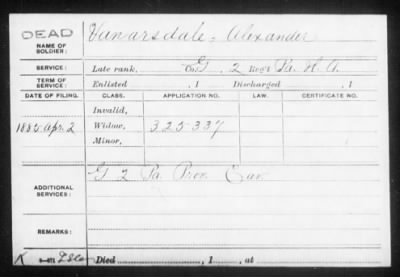 DEAD
NAME OF SOLDIER: Vanarsdale, Alexander
SERVICE: Late rank, Co. G, 2 Reg't Pa. H. A.
TERM OF SERVICE: Enlisted , 1 Discharged , 1
DATE OF FILING. CLASS. APPLICATION NO. LAW. CERTIFICATE NO.
Invalid,
1885 Apr. 2 Widow, 325-337
Minor,
ADDITIONAL SERVICES: G 2 Pa. Prov. Cav
REMARKS:
K
Died , 1 , at